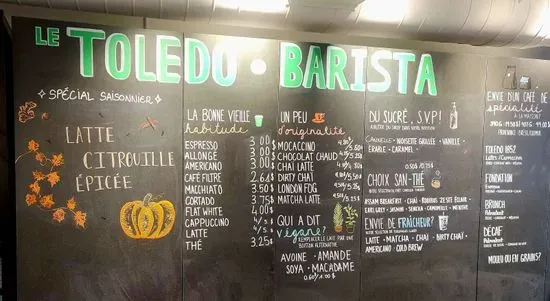 LE TOLEDO • BARISTA
SPÉCIAL SAISONNIER
LATTE
CITROUILLE
ÉPICÉE
LA BONNE VIEILLE
habitude
ESPRESSO 3.00
ALLONGÉ 3.00
AMERICANO 3.00
CAFÉ FILTRE 2.64
MACCHIATO 3.50
CORTADO 3.75
FLAT WHITE 4.00
CAPPUCCINO
LATTE
THÉ 3.25$
UN PEU
d'originalité
MOCACCINO
CHOCOLAT CHAUD
CHAI LATTE
DIRTY CHAI
LONDON FOG
MATCHA LATTE
QUI A DIT
végane?
REMPLACER LE LAIT POUR UNE
BOISSON ALTERNATIVE
AVOINE • AMANDE
SOYA • MACADAME
DU SUCRE, S.V.P!
CANNELLE • NOISETTE GRILLÉE • VANILLE •
ÉRABLE • CARAMEL
CHOIX SAN-THÉ
ASSAM BREAKFAST • CHAI • ROOIBOS
EARL GREY • JASMIN • SENCHA • CAMOMILLE • MENTHE
ENVIE DE FRAÎCHEUR?
LATTE • MATCHA • CHAI • DIRTY CHAI •
AMERICANO • COLD BREW
ENVIE D'UN CAFÉ DE
spécialité
À LA MAISON?
TOLEDO 1852
FONDATION
BRUNCH
DÉCAF
MOULU OU EN GRAINS?